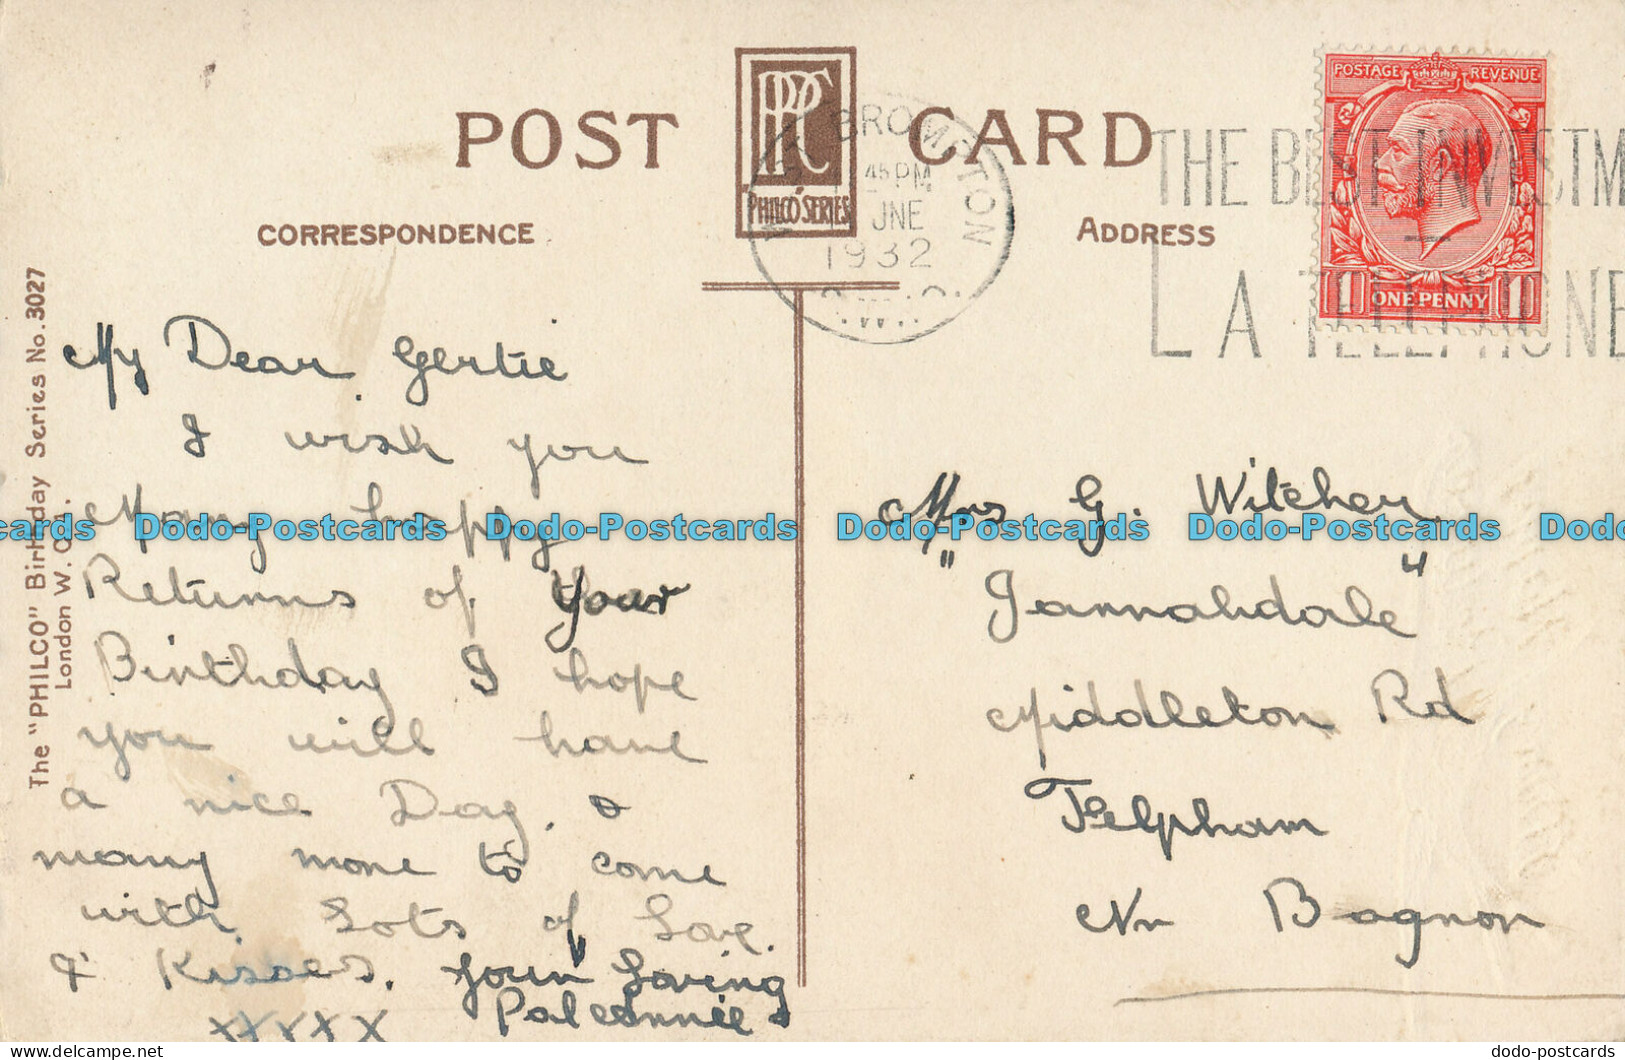 POST CARD
PPC
PHILCO SERIES
CORRESPONDENCE
ADDRESS
BROMPTON
45 PM
JNE
1932
S.W.10.
THE BEST INVESTM
A TELEPHONE
POSTAGE REVENUE
1 ONE PENNY 1
The "PHILCO" Birthday Series No. 3027
London W.C.
My Dear Gertie
I wish you
Many happy
Returns of Your
Birthday I hope
you will have
a nice Day. &
many more to come
with Lots of Love.
& Kisses. Your Loving
Pal
xxxxx
Mrs G. Witcher
"Jannahdale"
Middleton Rd
Felpham
Nr Bognor
Dodo-Postcards Dodo-Postcards Dodo-Postcards Dodo-Postcards Dodo
dodo-postcards.com